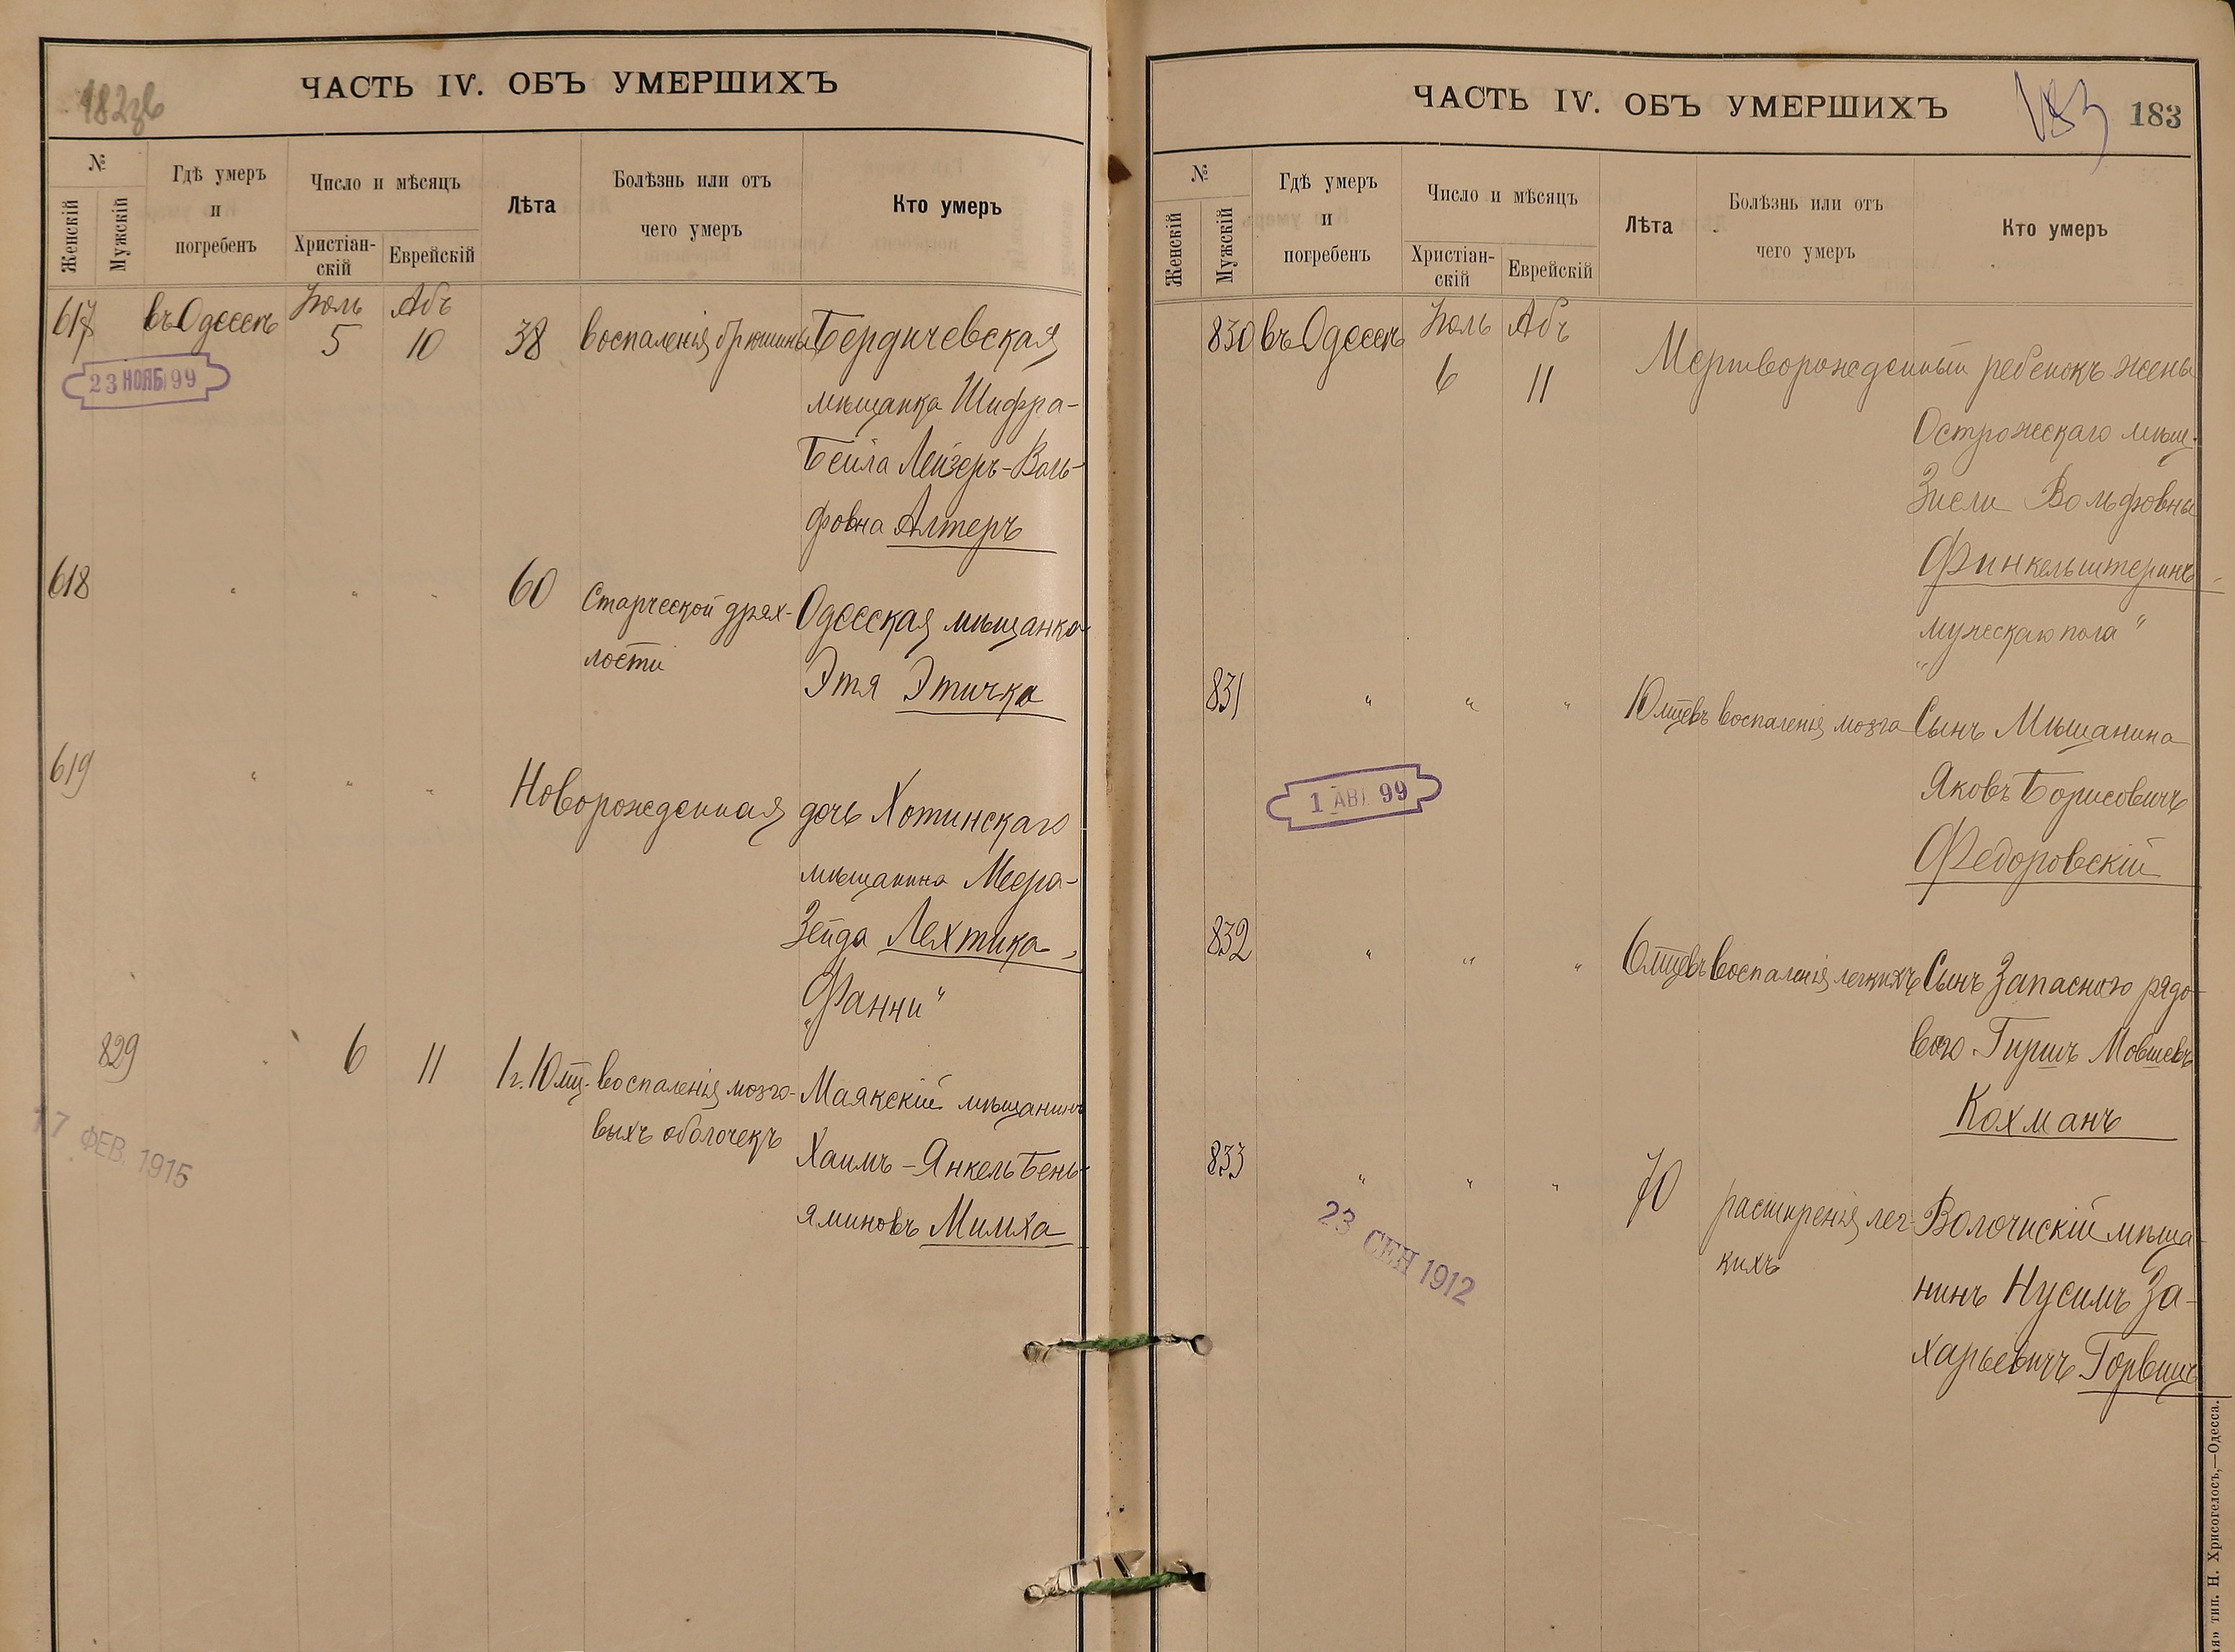 182 об
ЧАСТЬ IV. ОБЪ УМЕРШИХЪ
№
Женскій
Мужскій
Гдѣ умеръ
и
погребенъ
Число и мѣсяцъ
Христіан-
скій
Еврейскій
Лѣта
Болѣзнь или отъ
чего умеръ
Кто умеръ
617 въ Одессѣ Іюль 5 Абъ 10 38 воспаленія брюшины Бердичевская
мѣщанка Шифра-
Бейла Лейзеръ-Воль-
фовна Алтеръ
23 НОЯБ 99
618 " " " 60 Старческой дрях- Одесская мѣщанка
лости Этя Этичка
619 " " " Новорожденная дочь Хотинскаго
мѣщанина
Зейда Лехтика
"Фанни"
829 " 6 11 1 г. 10 мц. воспаленія мозго- Маякскій мѣщанинъ
выхъ оболочекъ Хаимъ-Янкель Бень-
яминовъ
17 ФЕВ. 1915
ЧАСТЬ IV. ОБЪ УМЕРШИХЪ
183 183
№
Женскій
Мужскій
Гдѣ умеръ
и
погребенъ
Число и мѣсяцъ
Христіан-
скій
Еврейскій
Лѣта
Болѣзнь или отъ
чего умеръ
Кто умеръ
830 въ Одессѣ Іюль 6 Абъ 11 Мертворожденный ребенокъ жены
Острожскаго мѣщ.
Зисли Вольфовны
Финкельштеринъ
мужескаго пола"
831 " " " 10 мцевъ воспаленія мозга Сынъ Мѣщанина
Яковъ Борисовичъ
Федоровскій
1 АВГ. 99
832 " " " 6 мцевъ воспаленія легкихъ Сынъ Запасного рядо-
вого Гиршъ Мовшевъ
Кохманъ
833 " " " 70 расширенія лег- Волочискій мѣща-
кихъ нинъ Нусимъ За-
харьевичъ Горвицъ
23 СЕН 1912
тип. Н. Хрисогелосъ,—Одесса.